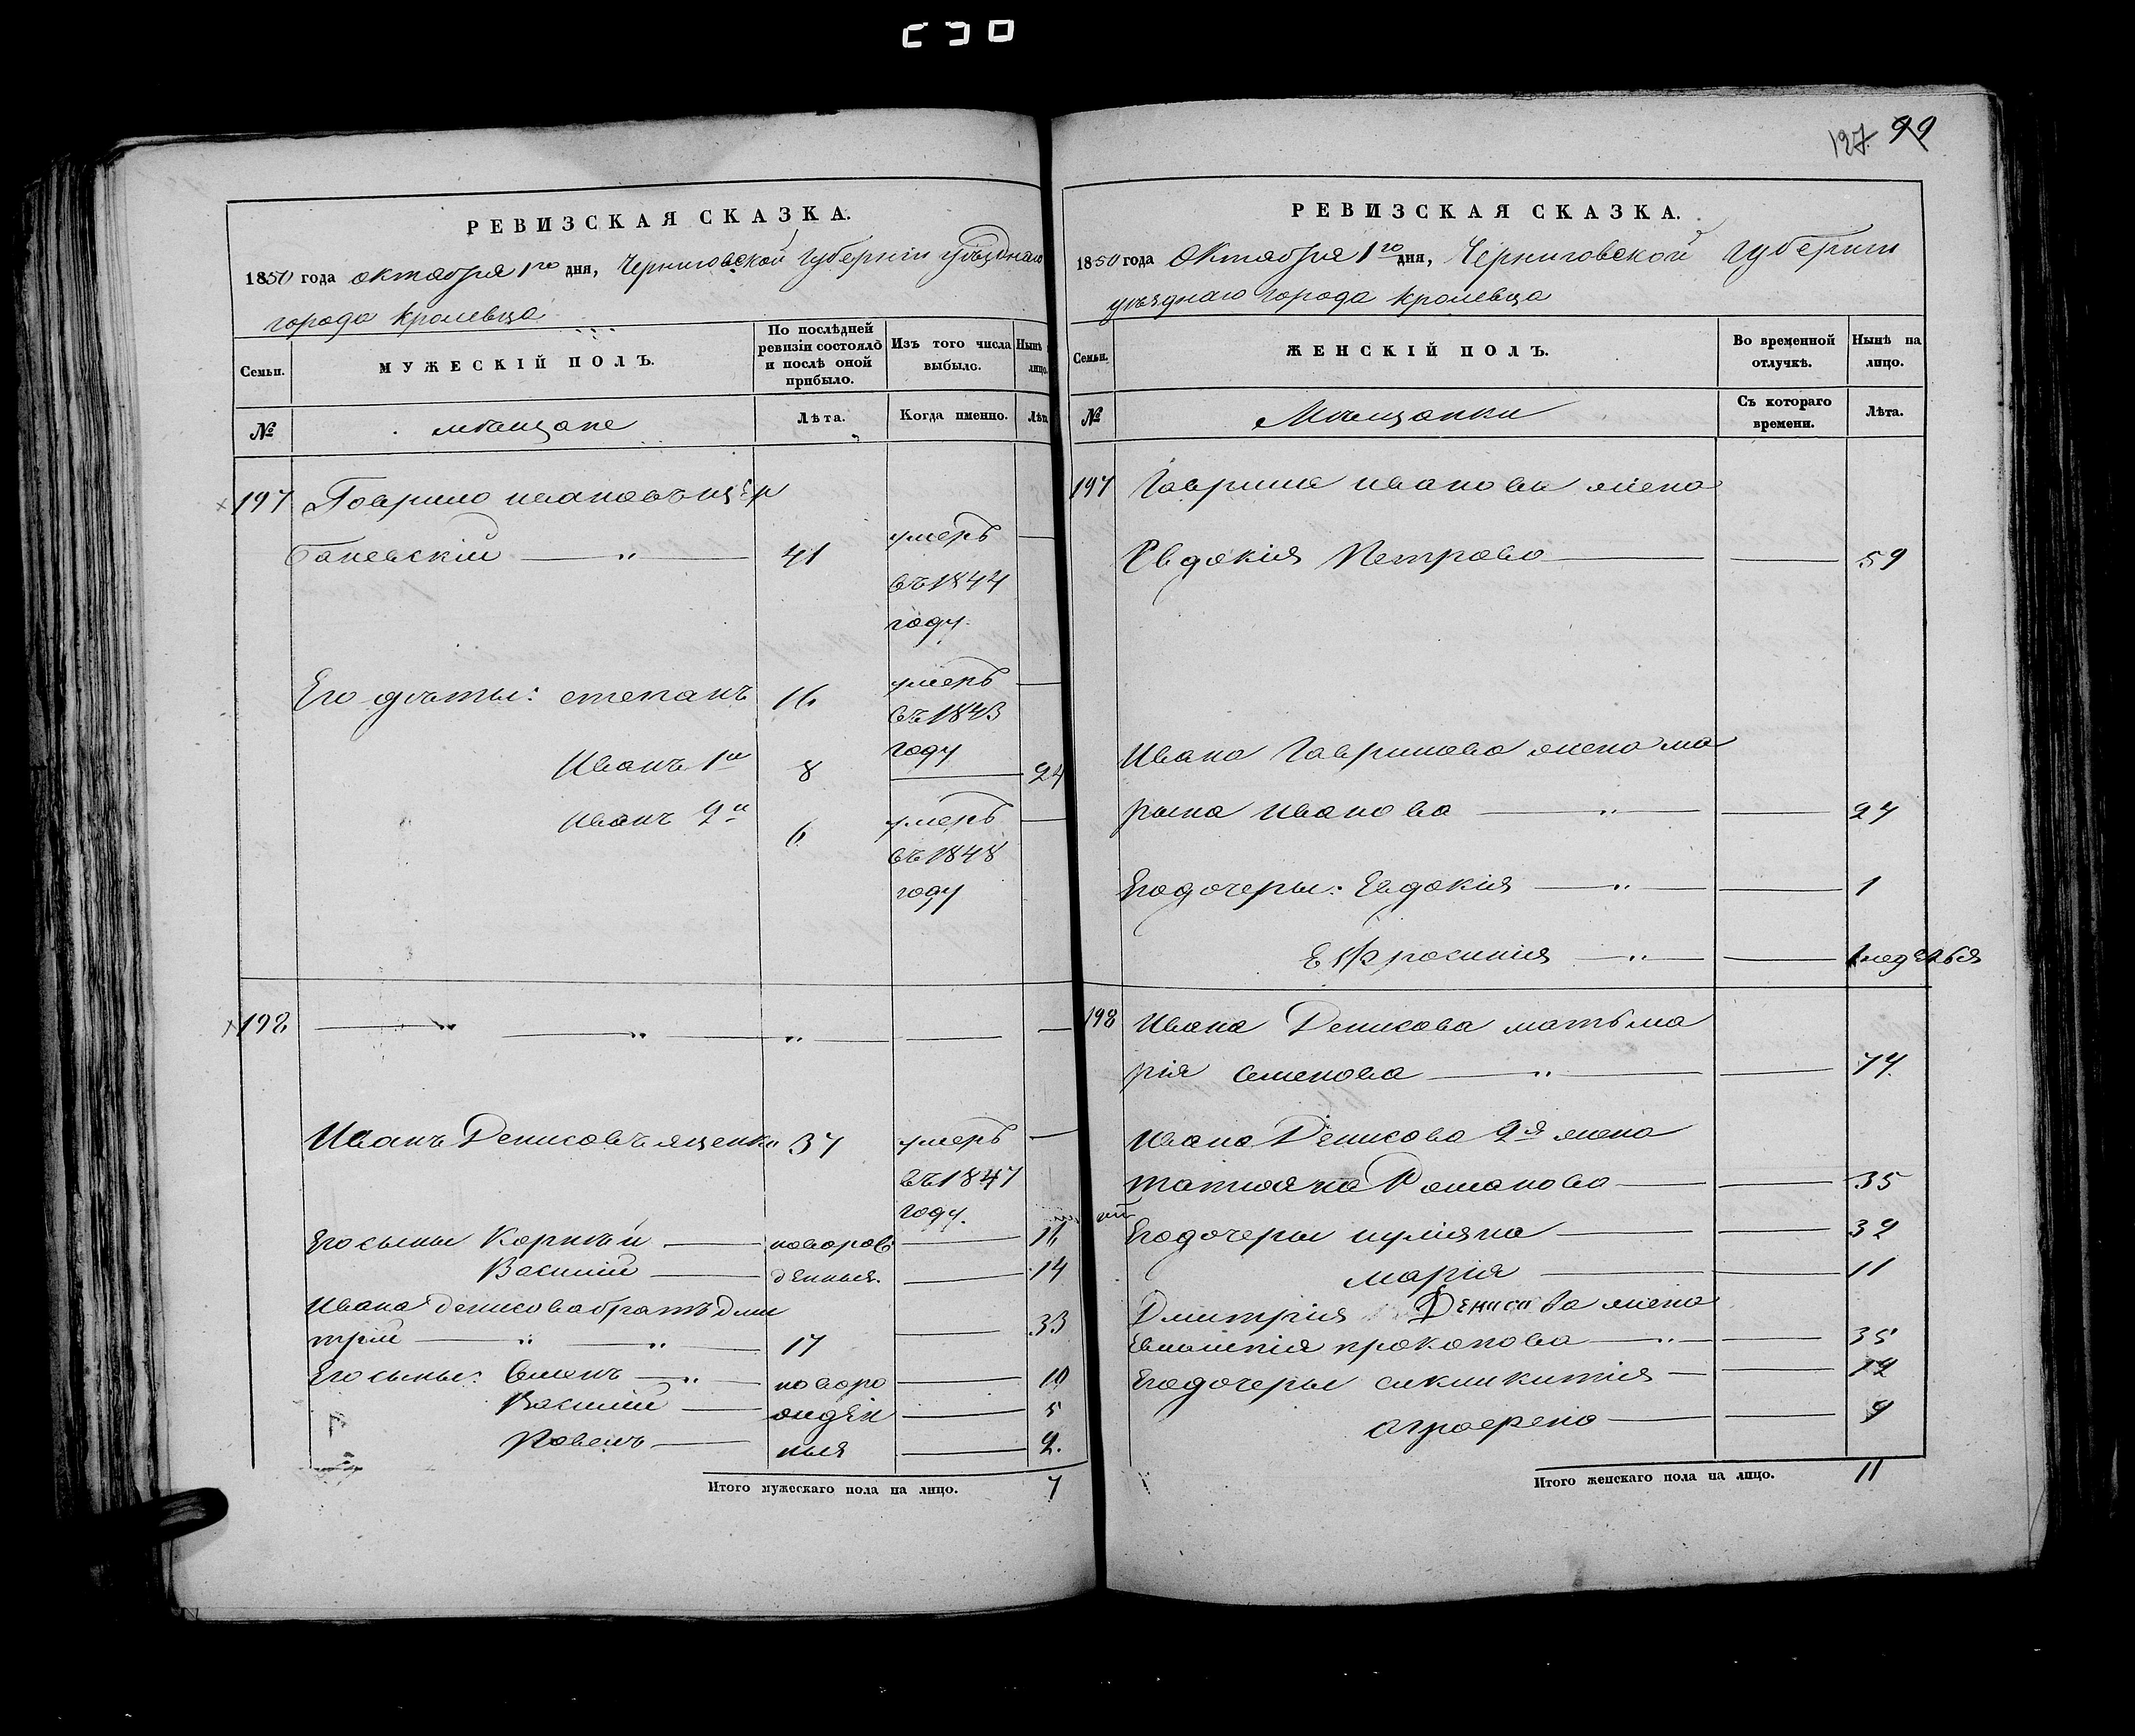 127. 99
РЕВИЗСКАЯ СКАЗКА.
1850 года октября 1го дня, Черниговской Губернiи уѣзднаго
города Кролевца
Семьи.
МУЖЕСКIЙ ПОЛЪ.
По послѣдней ревизiи состояло и послѣ оной прибыло.
Изъ того числа выбыло.
Нынѣ лицо.
№
мѣщане
Лѣта.
Когда именно.
Лѣт
197 Гаврило ивановъ
баневскiй 41 умеръ
въ 1844
году.
Его дѣти: степанъ 16 умеръ
въ 1843
году
Иванъ 1й 8 24
иванъ 2й 6 умеръ
въ 1848
году
198
Иванъ Денисовъ яценко 37 умеръ
въ 1847
году.
Его сыны Корнѣй новорож 16
Василiй денныя. 14
Ивана денисова братъ дми
трiй 17 33
Его сыны: Семенъ новоро 10
Василiй жден 5
Павелъ ныя 2.
Итого мужескаго пола на лицо. 7
РЕВИЗСКАЯ СКАЗКА.
1850 года Октября 1го дня, Черниговской Губернiи
уѣзднаго города Кролевца
Семьи.
ЖЕНСКIЙ ПОЛЪ.
Во временной отлучкѣ.
Нынѣ на лицо.
№
Мѣщанки
Съ котораго времени.
Лѣта.
197 Гаврила иванова жена
Евдокiя Петрова 59
Ивана Гаврилова жена ма
рина иванова 24
Его дочеры: Евдокiя 1
Ефросинiя 1 неделья
198 Ивана Денисова мать ма
рiя семенова 74.
Ивана Денисова 2я жена
татияна Романова 35
Его дочеры иулiяна 32
марiя 11
Дмитрiя Денисова жена
прокопова 35
Его дочеры 12
агрофена 9
Итого женскаго пола на лицо. 11